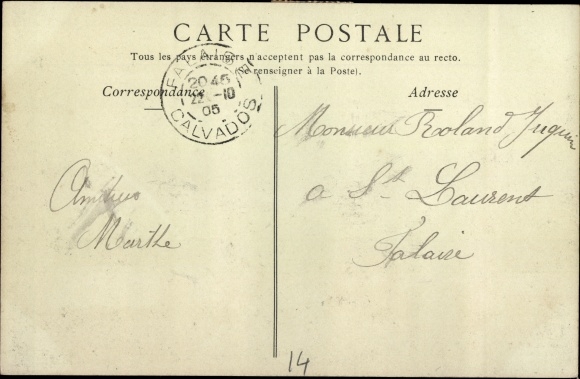 CARTE POSTALE
Tous les pays étrangers n'acceptent pas la correspondance au recto.
(Se renseigner à la Poste).
Correspondance
Adresse
FALAISE
20 45
22 -10
05
CALVADOS
Monsieur Roland
a St. Laurent
Falaise
Marthe
14